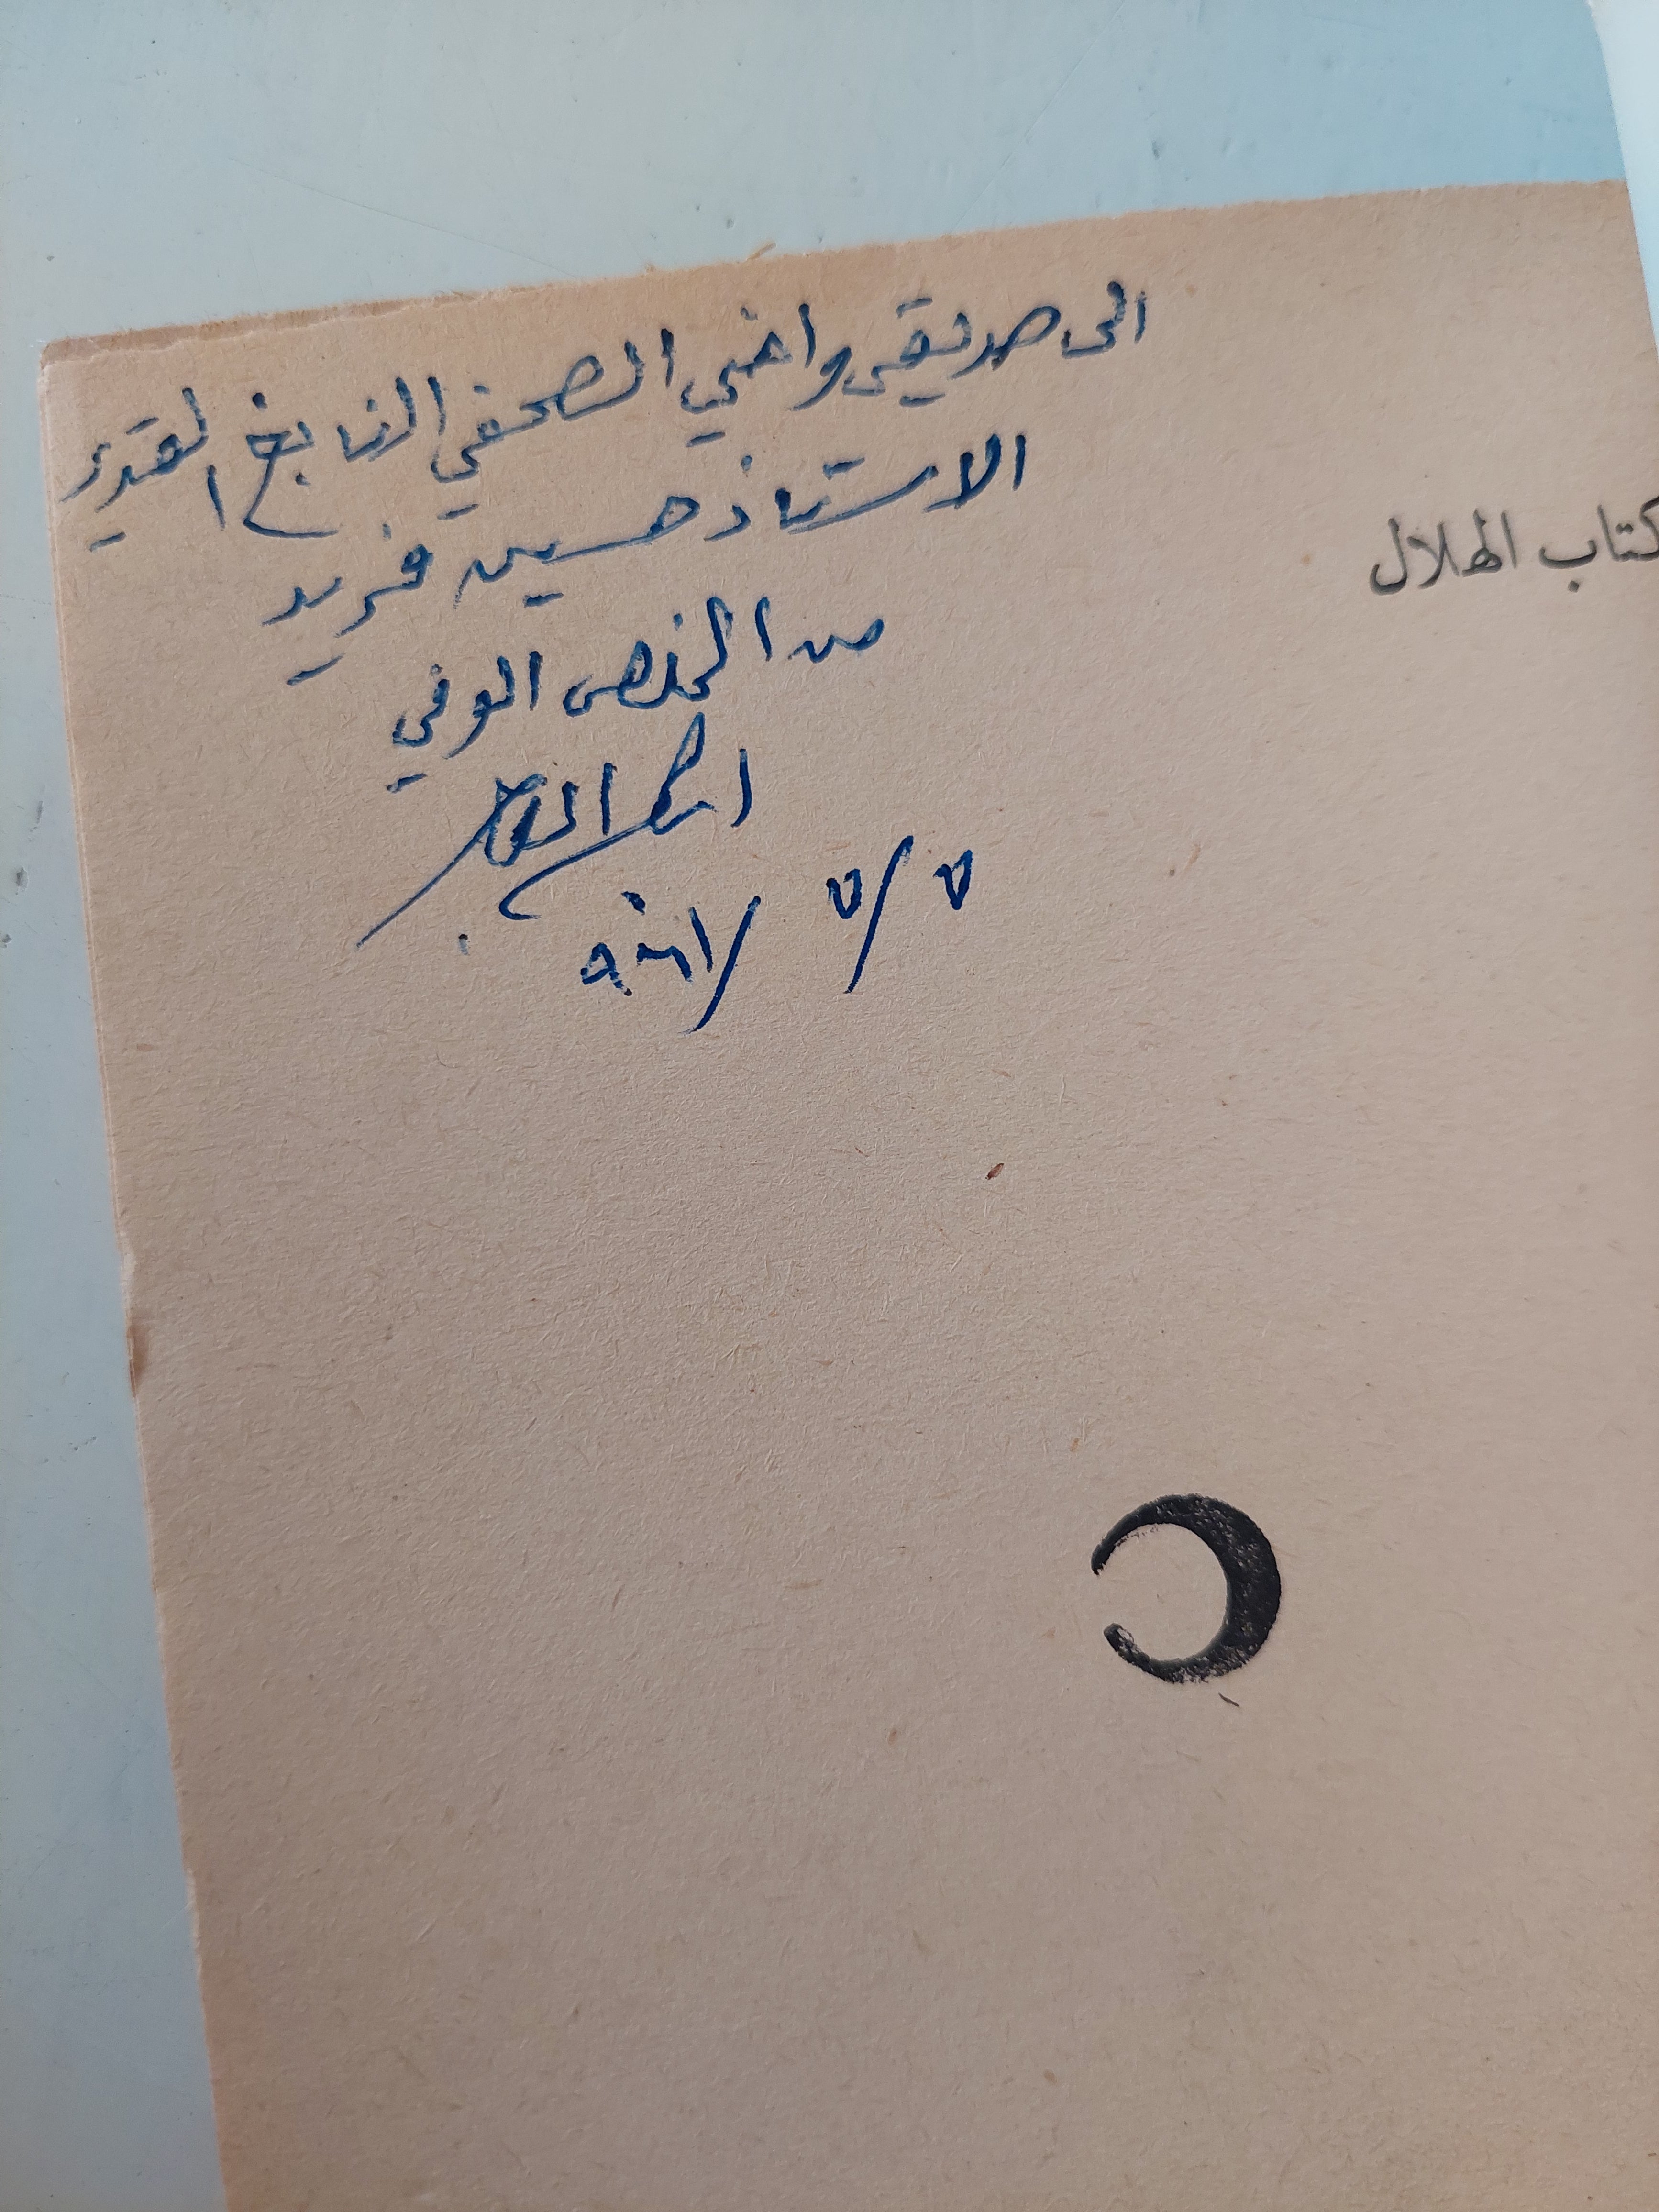 الى صديقي واخي الصحفي النابغ القدير
الاستاذ حسين فريد
من المخلص الوفي
٧/٧/
كتاب الهلال